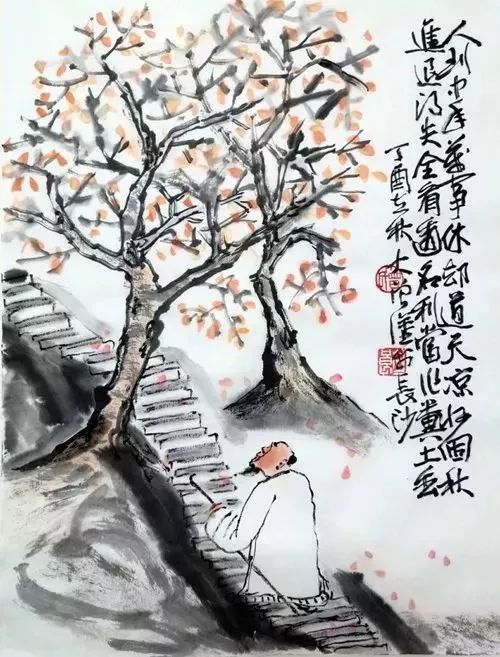 人到中年萬事休却道天凉好個秋
進退得失全看透名利當作糞土丢
丁酉立秋長沙